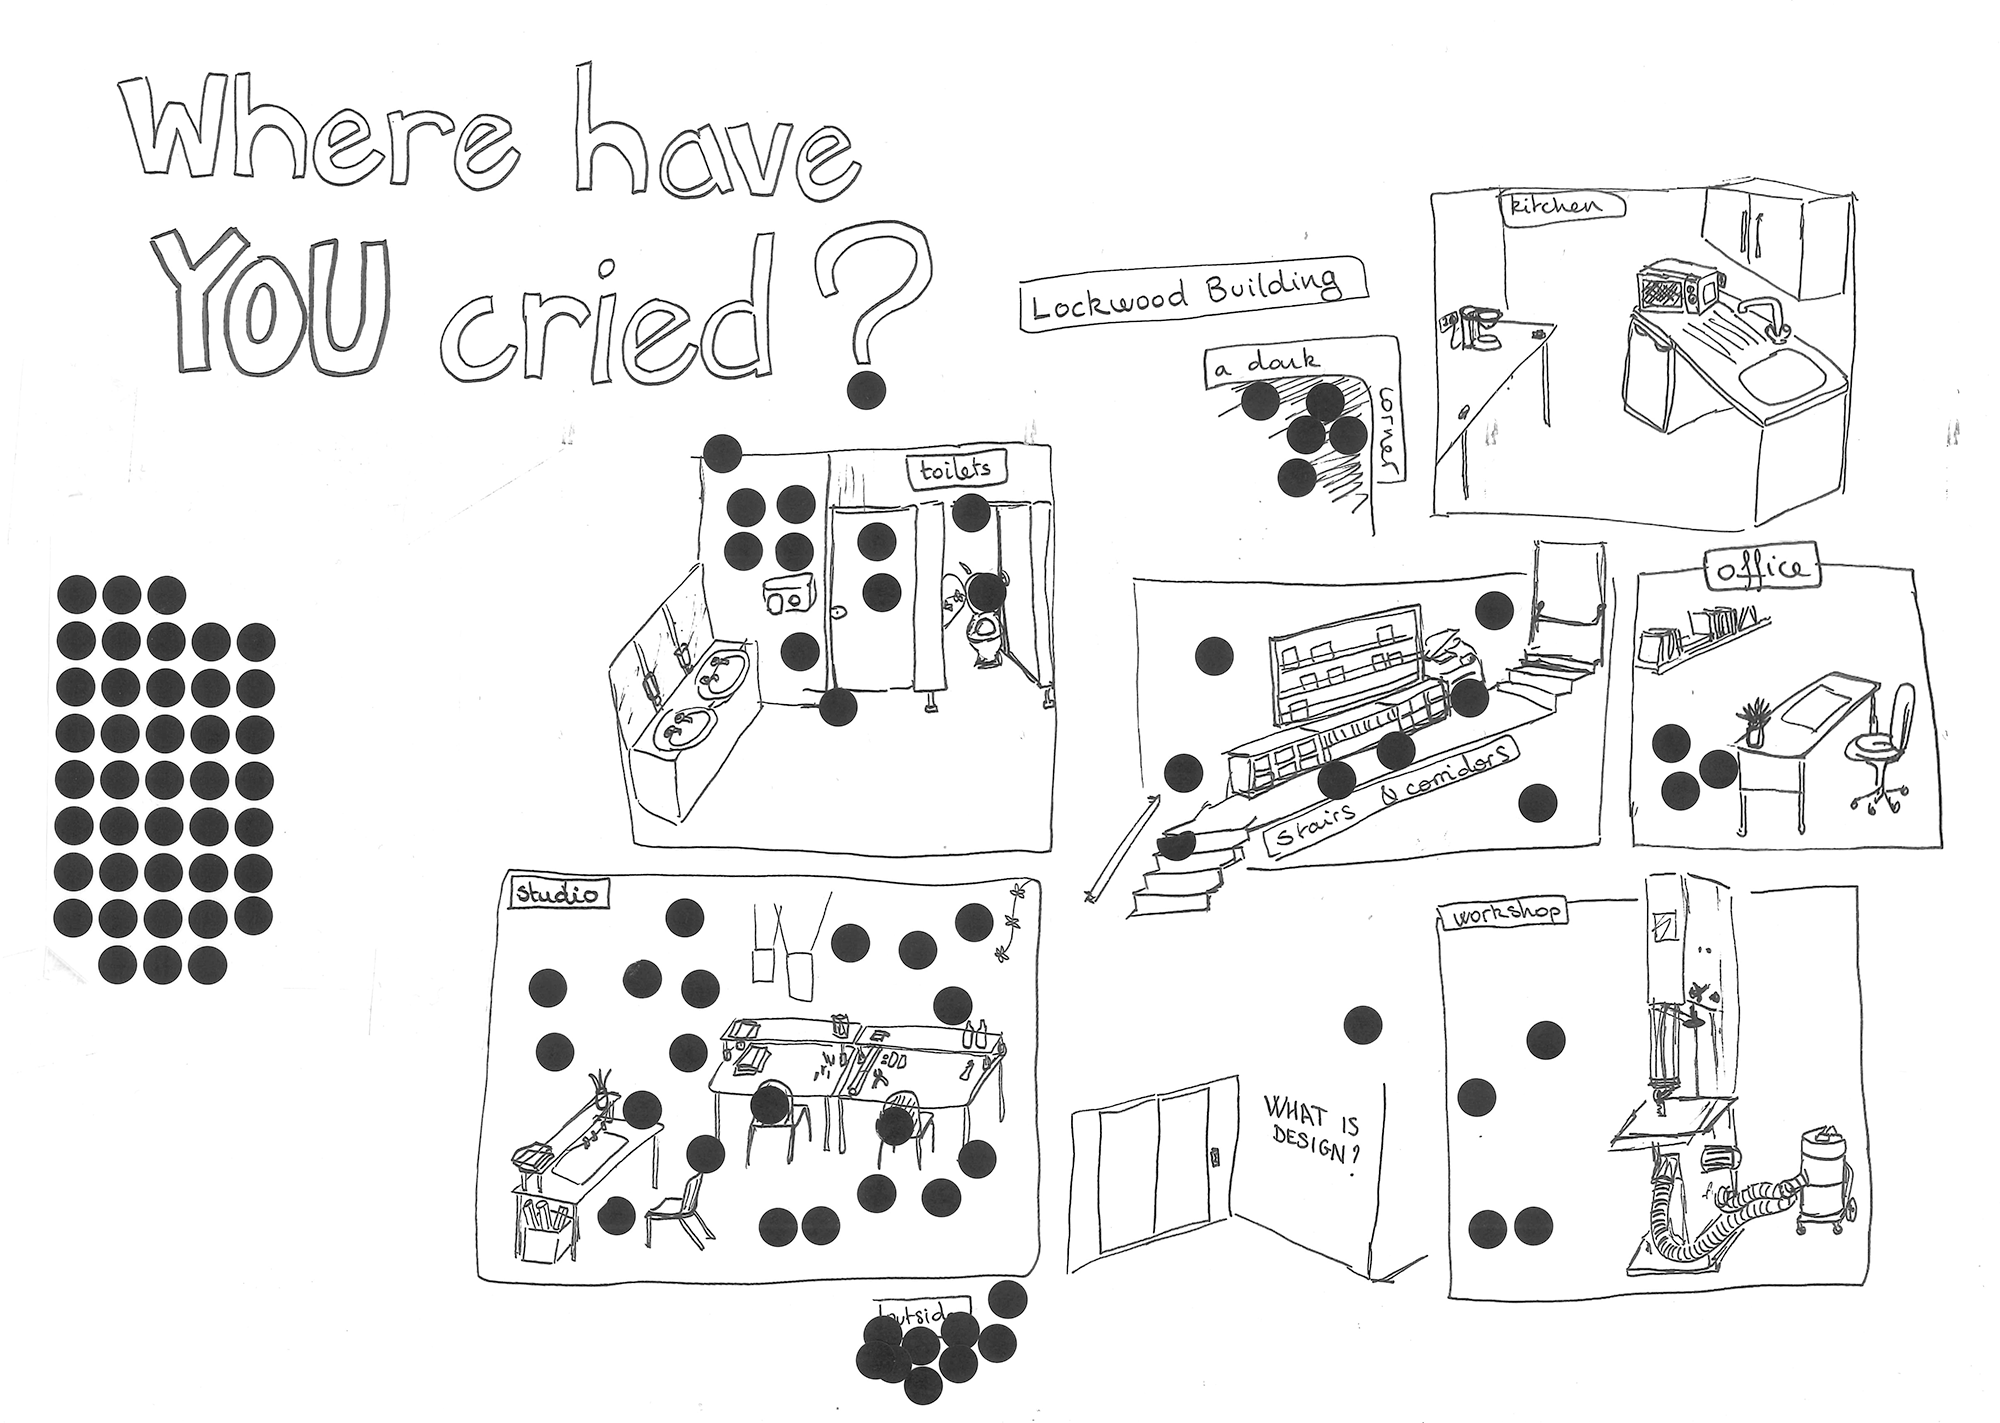 Where have
YOU cried?
Lockwood Building
kitchen
a dark
corner
toilets
office
stairs & corridors
studio
workshop
WHAT IS
DESIGN?
outside